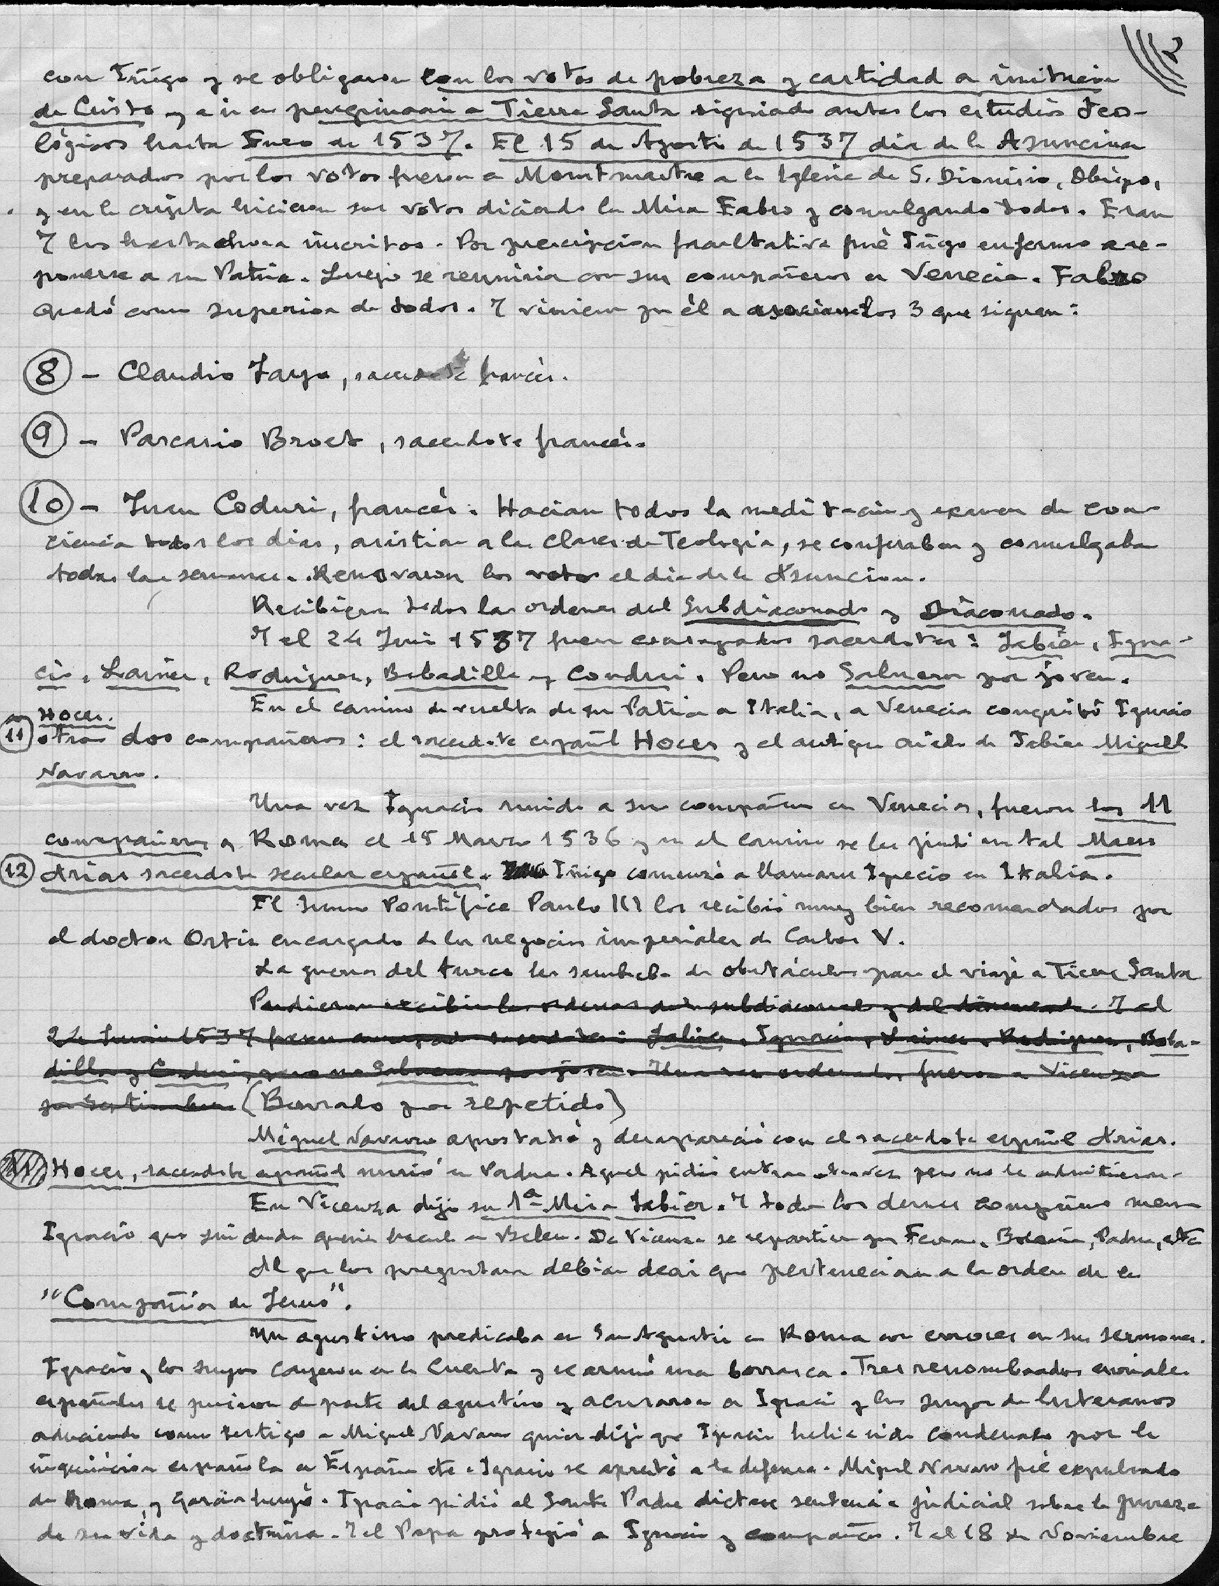 2
con Iñigo y se obligaron con los votos de pobreza y castidad a imitación
de Cristo y a ir en peregrinación a Tierra Santa siguiendo antes los estudios Teo-
lógicos hasta Enero de 1537. El 15 de Agosto de 1537 dia de la Asuncion
preparados por los votos fueron a Montmartre a la Iglesia de S. Dionisio, Obispo,
y en la cripta hicieron sus votos diciendo la Misa Fabro y comulgando todos. Eran
7 los hasta ahora inscritos. Por prescripcion facultativa fué Iñigo enfermo a re-
ponerse a su Patria. Luego se reuniria con sus compañeros en Venecia. Fabro
quedó como superior de todos. Y vinieron por él a asociarse los 3 que siguen:
8 - Claudio Jayo, sacerdote francés.
9 - Pascasio Broet, sacerdote francés.
10 - Juan Coduri, francés. Hacian todos la meditacion y examen de con-
ciencia todos los dias, asistian a las clases de Teologia, se confesaban y comulgaban
todas las semanas. Renovaron los votos el dia de la Asuncion.
Recibieron todos las ordenes del Subdiaconado y Diaconado.
Y el 24 Junio 1537 fueron consagrados sacerdotes: Jabier, Igna-
cio, Lainez, Rodriguez, Bobadilla y Conduri. Pero no Salmeron por joven.
En el camino de vuelta de su Patria a Italia, a Venecia conquistó Ignacio
Hoces.
11 otros dos compañeros: el sacerdote español Hoces y el antiguo criado de Jabier Miguel
Navarro.
Una vez Ignacio unido a sus compañeros en Venecia, fueron los 11
compañeros a Roma el 15 Marzo 1536 y en el camino se les juntó un tal
12 Arias sacerdote secular español. Iñigo comenzó a llamarse Ignacio en Italia.
El Sumo Pontífice Paulo III los recibió muy bien recomendados por
el doctor Ortiz encargado de los negocios imperiales de Carlos V.
La guerra del turco les sembraba de obstáculos para el viaje a Tierra Santa
Pudieron recibir las ordenes del subdiaconado y del diaconado. Y el
24 Junio 1537 fueron consagrados sacerdotes: Jabier, Ignacio, Lainez, Rodriguez, Boba-
dilla y Coduri, pero no Salmeron por joven. Una vez ordenados, fueron a Vicenza
por Septiembre (Borrado por repetido)
Miguel Navarro apostató y desapareció con el sacerdote español Arias.
11 Hoces, sacerdote español murió en Padua. Aquel pidió entrar otra vez pero no le admitieron.
En Vicenza dijo su 1ª Misa Jabier. Y todos los demas compañeros menos
Ignacio que sin duda queria hacerlo en Belen. De Vicenza se repartieron por Ferrara, Bolonia, Padua, etc
Al que los preguntara debian decir que pertenecian a la orden de la
"Compañia de Jesus".
Un agustino predicaba en San Agustin en Roma con errores en sus sermones.
Ignacio y los suyos cayeron en la cuenta y se armó una borrasca. Tres renombrados
españoles se pusieron de parte del agustino y acusaron a Ignacio y los suyos de luteranos
aduciendo como testigo a Miguel Navarro quien dijo que Ignacio habia sido condenado por la
inquisicion española en España etc. Ignacio se aprestó a la defensa. Miguel Navarro fué expulsado
de Roma y Garcia huyó. Ignacio pidió al Santo Padre dictase sentencia judicial sobre la pureza
de su vida y doctrina. Y el Papa protegió a Ignacio y compañeros. Y el 18 de Noviembre